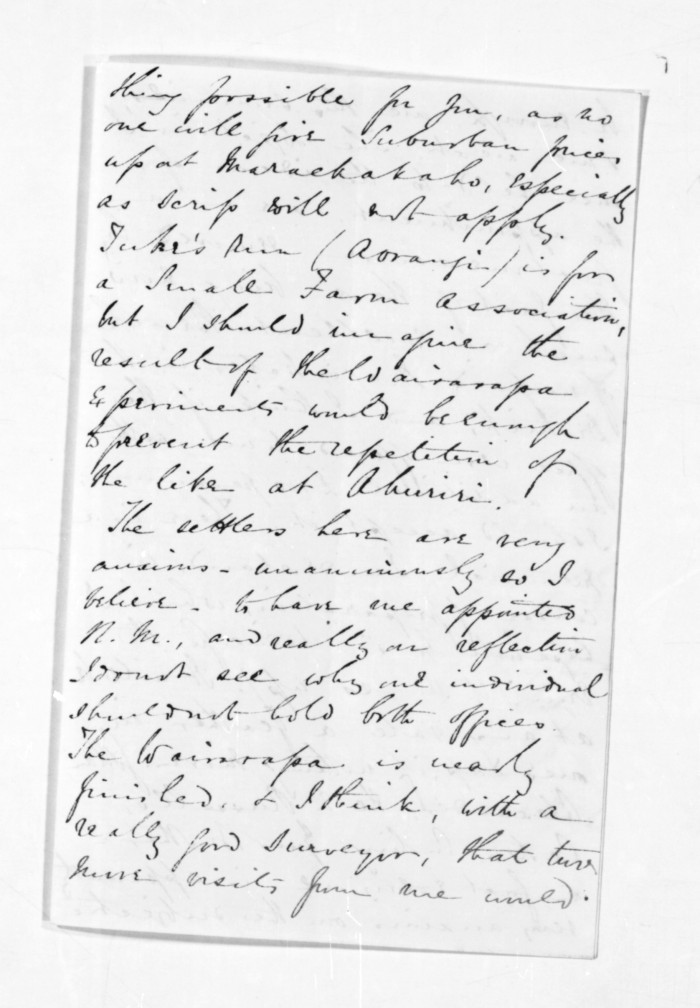 thing possible for you, as no
one will give Suburban prices
up at Maraekakaho, especially
as scrip will not apply.
Tuke's run (Aorangi) is for
a Small Farm Association,
but I should imagine the
result of the Wairarapa
Experiments would be enough
to prevent the repetition of
the like at Ahuriri.
The settlers here are very
anxious - unanimously so I
believe - to have me appointed
R.M., and really on reflection
I do not see why one individual
should not hold both offices
The Wairarapa is nearly
finished, & I think, with a
really good Surveyor, that two
more visits from me would